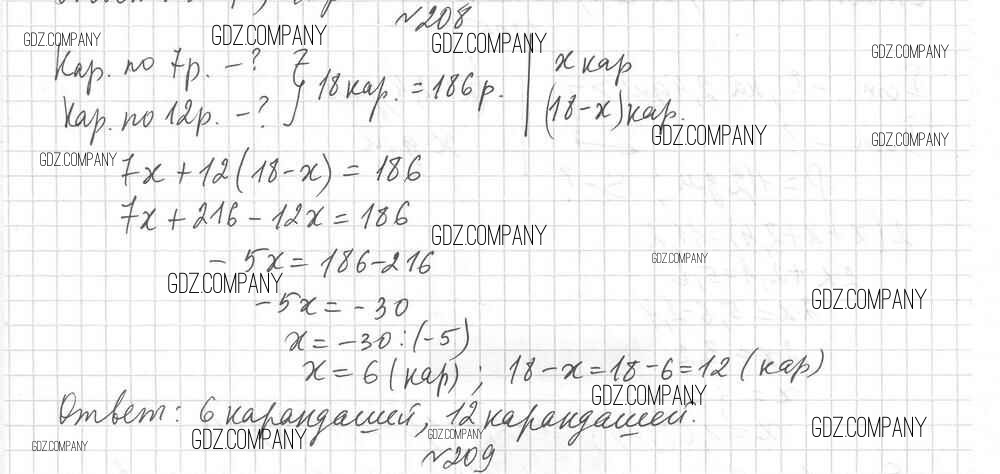 №208
GDZ.COMPANY GDZ.COMPANY GDZ.COMPANY GDZ.COMPANY
Кар. по 7р. – ? } 18 кар. = 186 р. | x кар
Кар. по 12р. – ? (18-x) кар.
GDZ.COMPANY GDZ.COMPANY GDZ.COMPANY
7x + 12(18-x) = 186
7x + 216 - 12x = 186
GDZ.COMPANY
- 5x = 186-216
GDZ.COMPANY GDZ.COMPANY GDZ.COMPANY
-5x = -30
x = -30 : (-5)
x = 6 (кар) ; 18-x=18-6=12 (кар)
GDZ.COMPANY
Ответ: 6 карандашей, 12 карандашей.
GDZ.COMPANY GDZ.COMPANY GDZ.COMPANY GDZ.COMPANY
№209